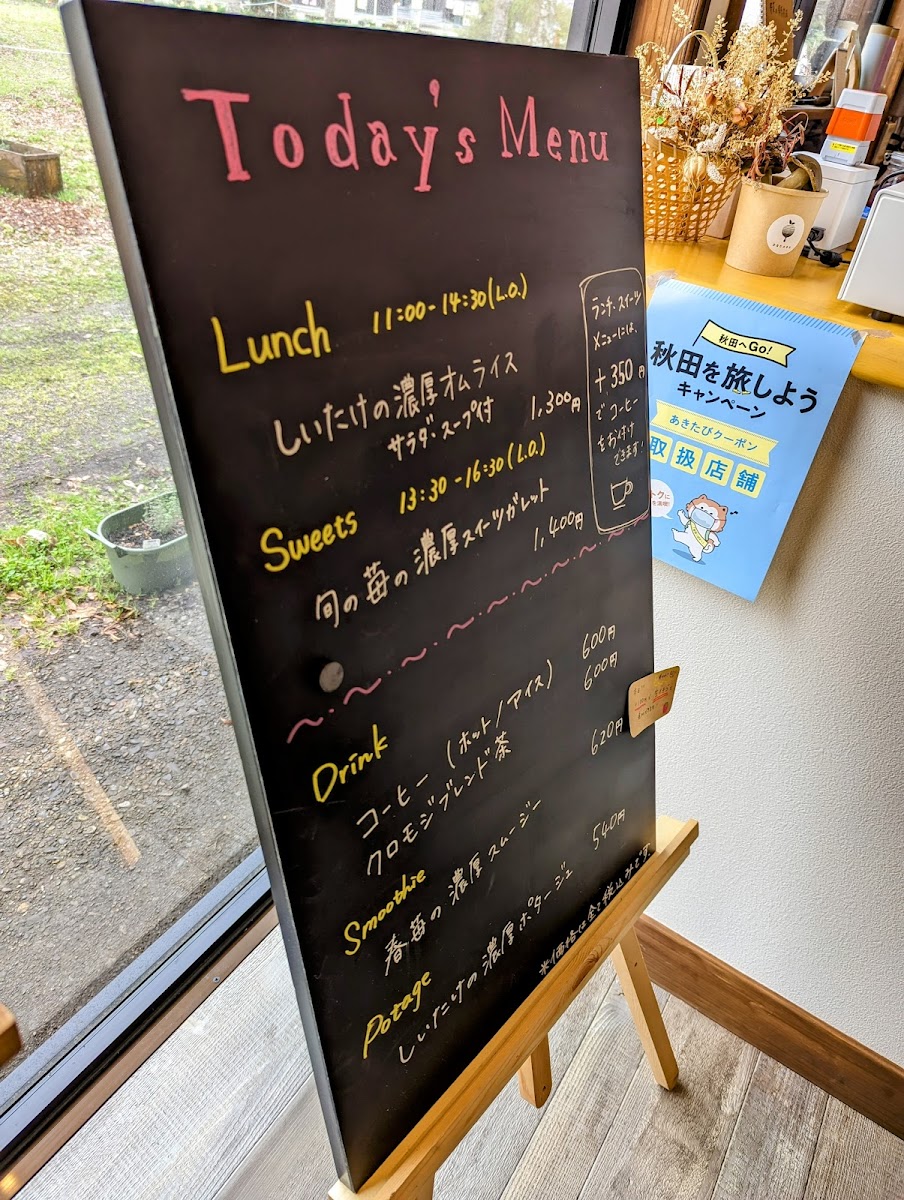 Today's Menu
Lunch 11:00-14:30(L.O.)
しいたけの濃厚オムライス
サラダ・スープ付 1,300円
Sweets 13:30-16:30(L.O.)
旬の苺の濃厚スイーツガレット
1,400円
ランチ、スイーツ
メニューには、
+350円
でコーヒー
をお付け
できます。
Drink
コーヒー (ホット/アイス) 600円
クロモジブレンド茶 600円
Smoothie
春苺の濃厚スムージー 620円
Potage
しいたけの濃厚ポタージュ 540円
※価格は全て税込みです。
秋田へGo!
秋田を旅しよう
キャンペーン
あきたびクーポン
取扱店舗